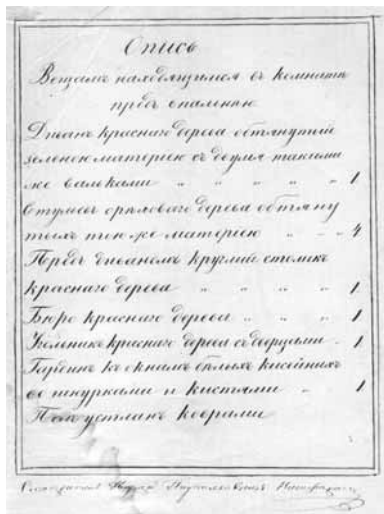 Опись
Вещамъ находящимся въ комнатѣ
предъ спальнею
Диванъ краснаго дерева обтянутый
зеленою матеріею съ двумя такими
же валиками " " " " " 1
Стульевъ орѣховаго дерева обтяну
тыхъ тою же матеріею " " " 4
Предъ диваномъ круглый столикъ
краснаго дерева " " " " 1
Бюро краснаго дерева " " " 1
Угольникъ краснаго дерева съ дверцами " 1
Гардинъ къ окнамъ бѣлыхъ кисейныхъ
со шнурками и кистями " 1
Полъ устланъ коврами